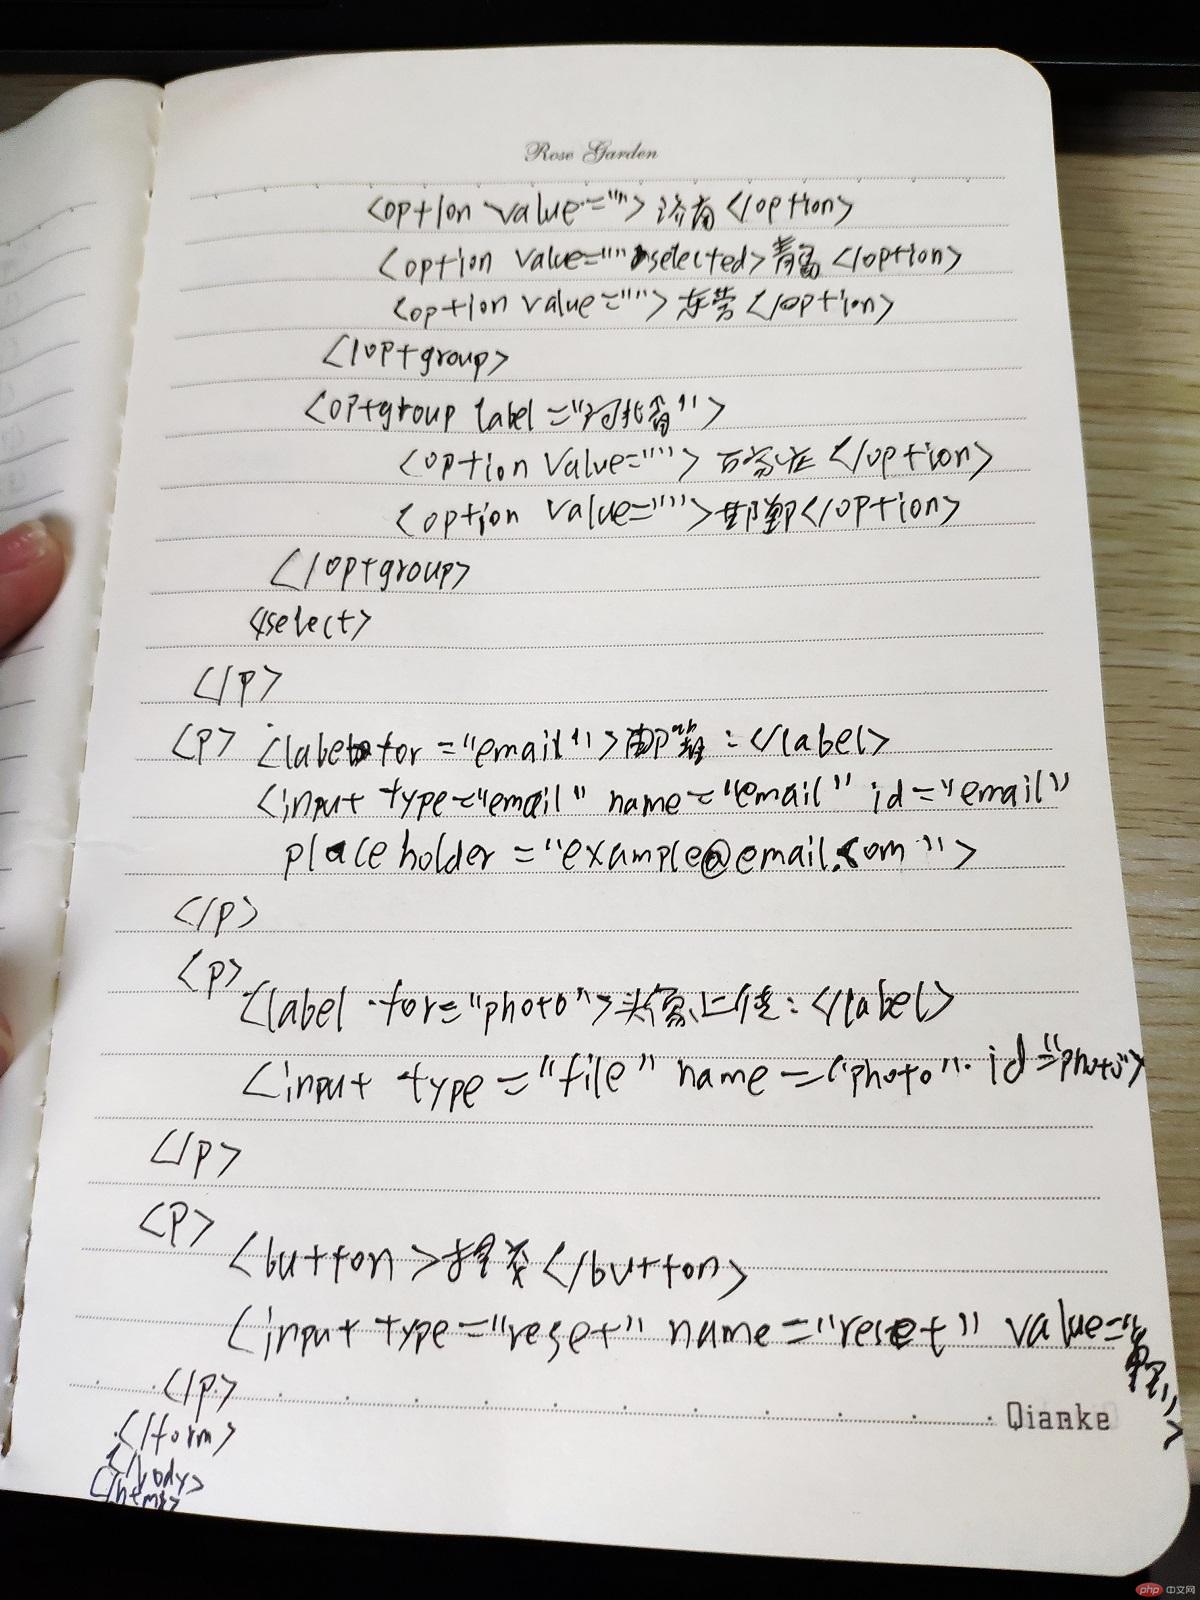 Rose Garden
<option value="">济南</option>
<option value="" selected>青岛</option>
<option value="">东营</option>
</optgroup>
<optgroup label="河北省">
<option value="">石家庄</option>
<option value="">邯郸</option>
</optgroup>
<select>
</p>
<p> <label for="email">邮箱:</label>
<input type="email" name="email" id="email"
placeholder="example@email.com">
</p>
<p>
<label for="photo">头像上传:</label>
<input type="file" name="photo" id="photo">
</p>
<p>
<button>提交</button>
<input type="reset" name="reset" value="重置">
</p>
Qianke
</form>
</body>
</html>
php 中文网